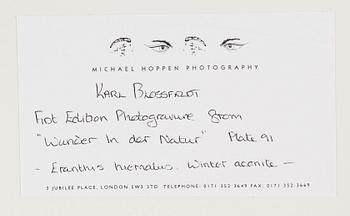 MICHAEL HOPPEN PHOTOGRAPHY
KARL BLOSSFELDT
First Edition Photogravure from
"Wunder In der Natur" Plate 91
- Eranthis hiemalus. Winter aconite -
3 JUBILEE PLACE, LONDON SW3 3TD TELEPHONE: 0171 352 3649 FAX: 0171 352 3669